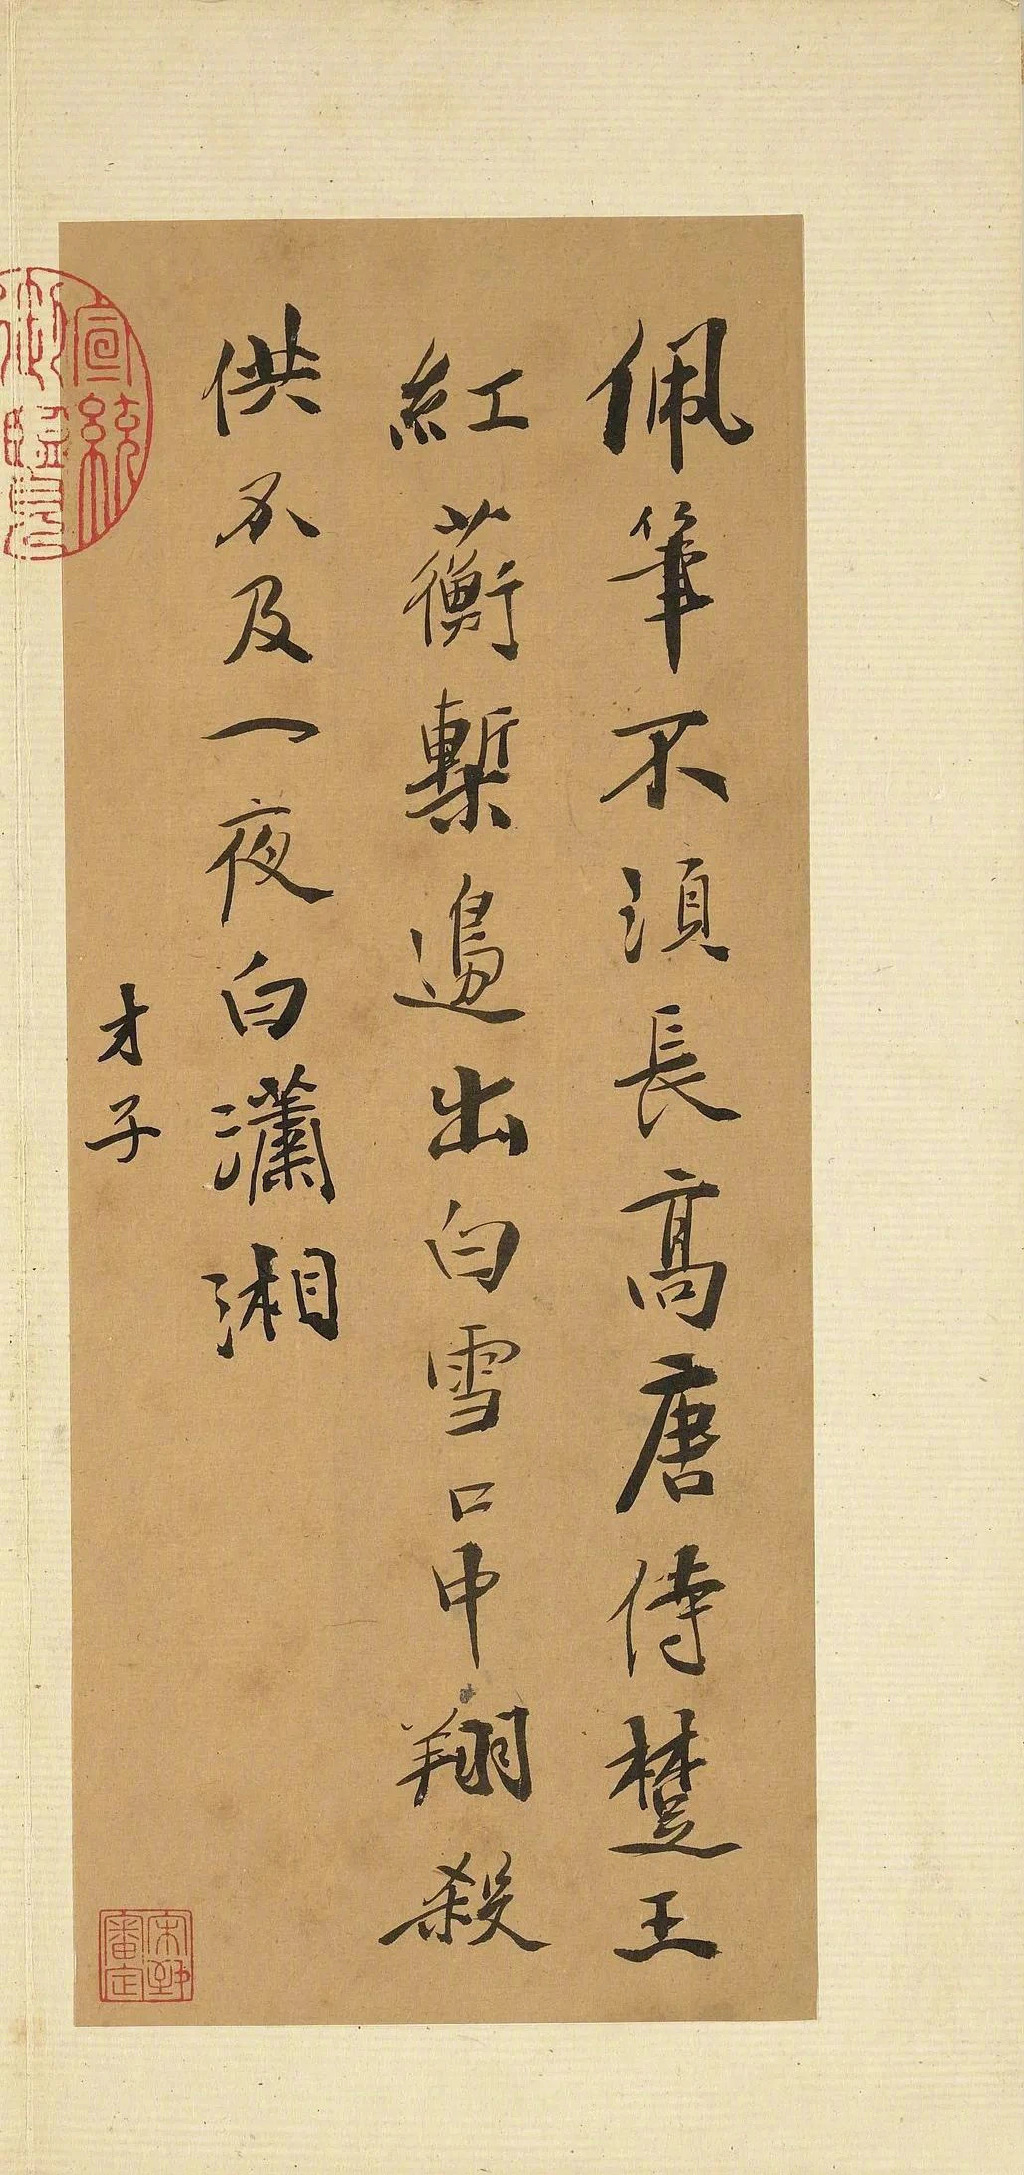 佩筆不須長高唐侍楚王
紅蘅槧邊出白雪口中翔殺
供不及一夜白瀟湘
才子
宣統
御覽
審定